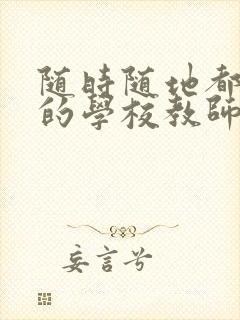 随時随地都
的學校教師
妄言兮